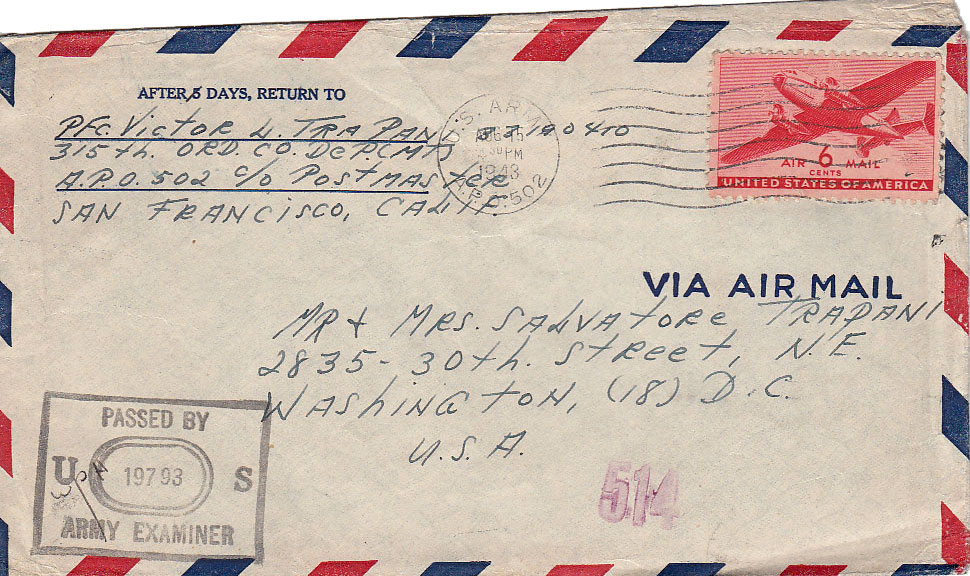 AFTER 5 DAYS, RETURN TO
PFC. Victor L. TRAPANI
315th. ORD. CO. DEP.(MT)
A.P.O. 502 c/o Postmaster
SAN FRANCISCO, CALIF.
U.S. ARMY
PM
1943
A.P.O. 502
AIR 6 MAIL
CENTS
UNITED STATES OF AMERICA
VIA AIR MAIL
MR & MRS. SALVATORE TRAPANI
2835-30th. Street, N.E.
WASHINGTON, (18) D.C.
U.S.A.
PASSED BY
U 19793 S
ARMY EXAMINER
514